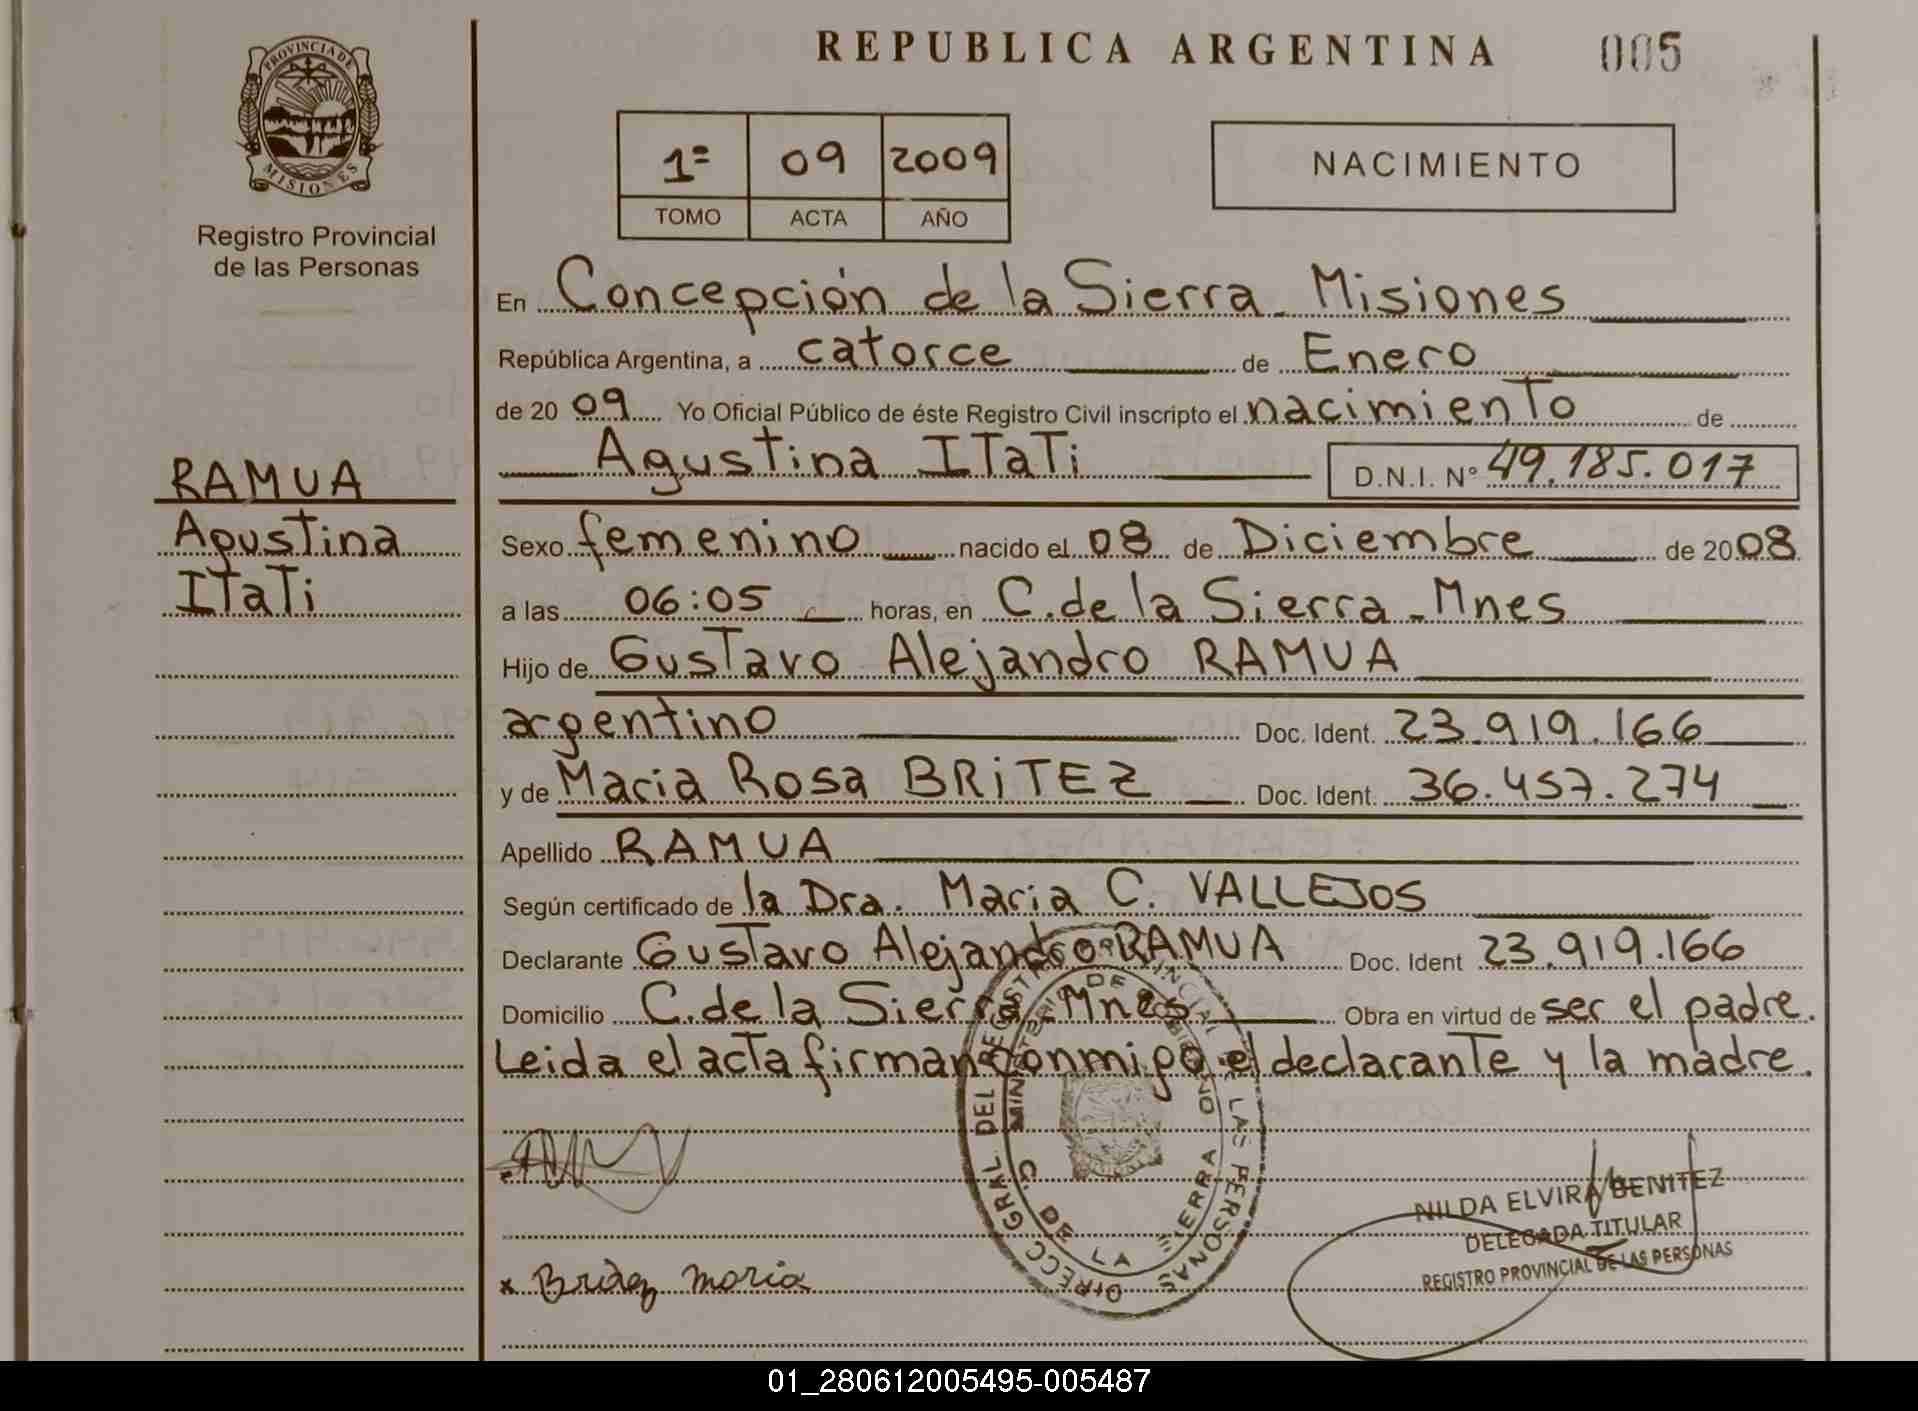 REPUBLICA ARGENTINA 005
PROVINCIA DE MISIONES
Registro Provincial
de las Personas
1º 09 2009
TOMO ACTA AÑO
NACIMIENTO
En Concepción de la Sierra - Misiones
República Argentina, a catorce de Enero
de 2009 Yo Oficial Público de éste Registro Civil inscripto el nacimiento de
Agustina ITaTi D.N.I. Nº 49.185.017
RAMUA
Agustina
ITaTi
Sexo femenino nacido el 08 de Diciembre de 2008
a las 06:05 horas, en C. de la Sierra - Mnes
Hijo de Gustavo Alejandro RAMUA
argentino Doc. Ident. 23.919.166
y de Maria Rosa BRiTEZ Doc. Ident. 36.457.274
Apellido RAMUA
Según certificado de la Dra. Maria C. VALLEJOS
Declarante Gustavo Alejandro RAMUA Doc. Ident 23.919.166
Domicilio C. de la Sierra - Mnes Obra en virtud de ser el padre.
Leida el acta firman conmigo el declarante y la madre.
DIRECC GRAL DEL REGISTRO PROVINCIAL DE LAS PERSONAS
MINISTERIO DE GOBIERNO
C. DE LA SIERRA
x Britez Maria
NILDA ELVIRA BENITEZ
DELEGADA TITULAR
REGISTRO PROVINCIAL DE LAS PERSONAS
01_280612005495-005487